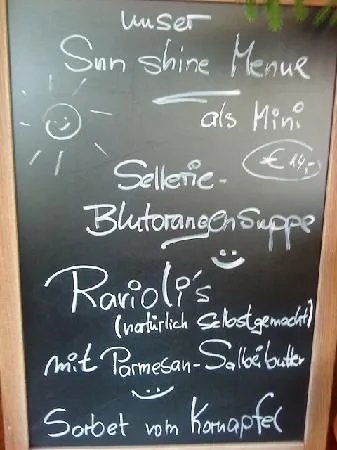 unser
Sun shine Menue
als Mini
€ 14,-
Sellerie-
Blutorangensuppe
Ravioli's
(natürlich selbstgemacht)
mit Parmesan-Salbeibutter
Sorbet vom Kornapfel